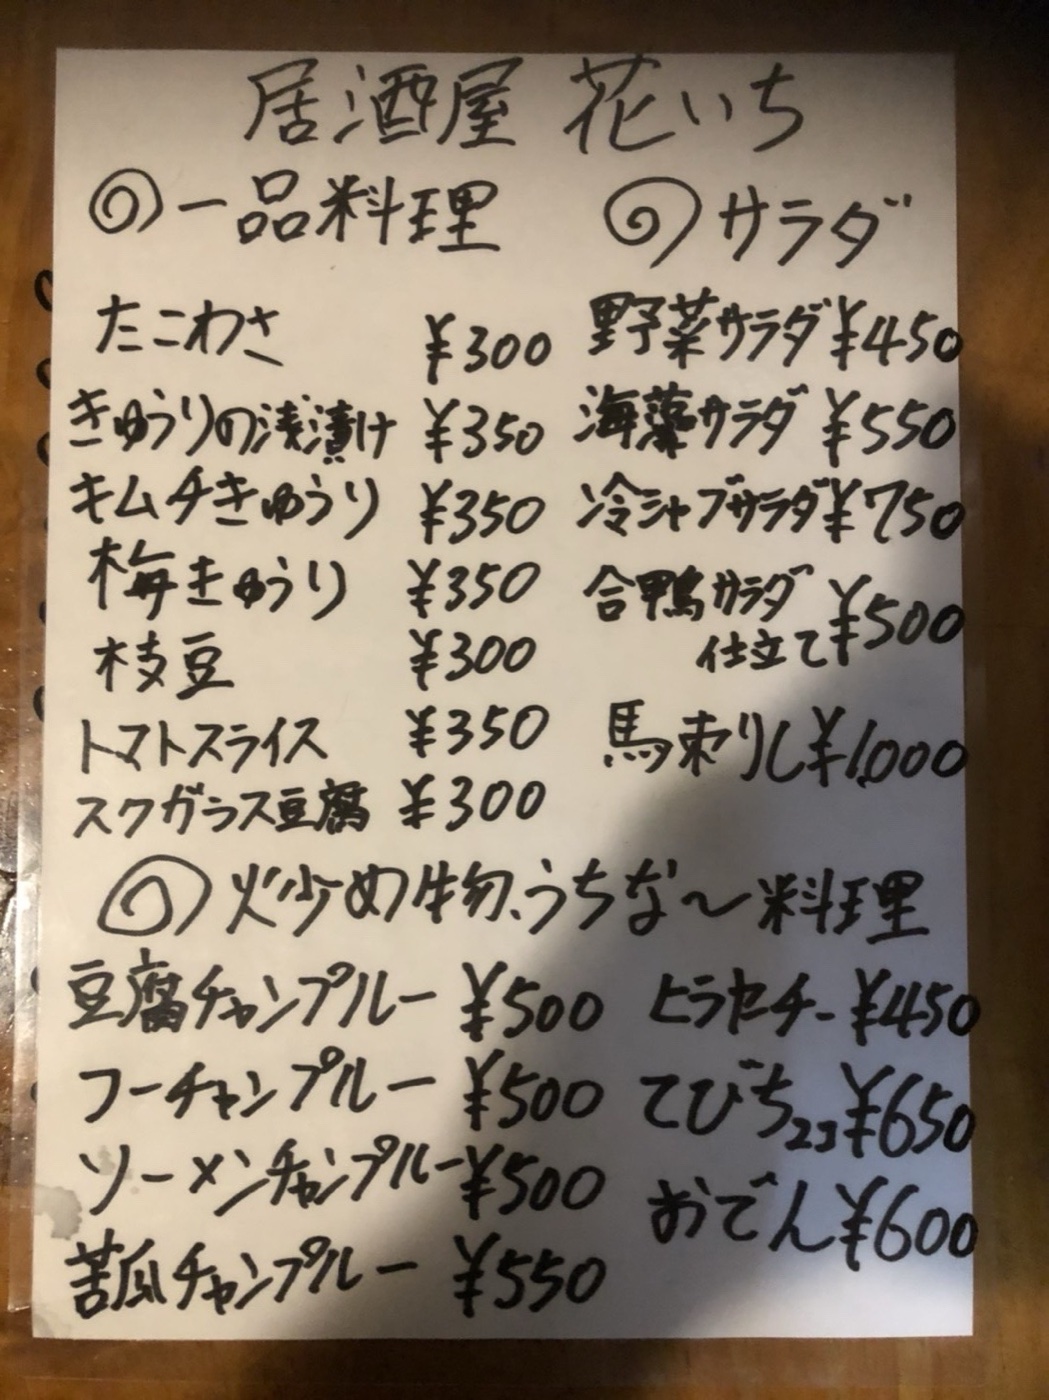 居酒屋 花いち
一品料理
たこわさ ¥300
きゅうりの浅漬け ¥350
キムチきゅうり ¥350
梅きゅうり ¥350
枝豆 ¥300
トマトスライス ¥350
スクガラス豆腐 ¥300
サラダ
野菜サラダ ¥450
海藻サラダ ¥550
冷シャブサラダ ¥750
合鴨サラダ
仕立て ¥500
馬刺りし ¥1,000
炒め物、うちな〜料理
豆腐チャンプルー ¥500
フーチャンプルー ¥500
ソーメンチャンプルー ¥500
苦瓜チャンプルー ¥550
ヒラヤチー ¥450
てびち 2コ ¥650
おでん ¥600